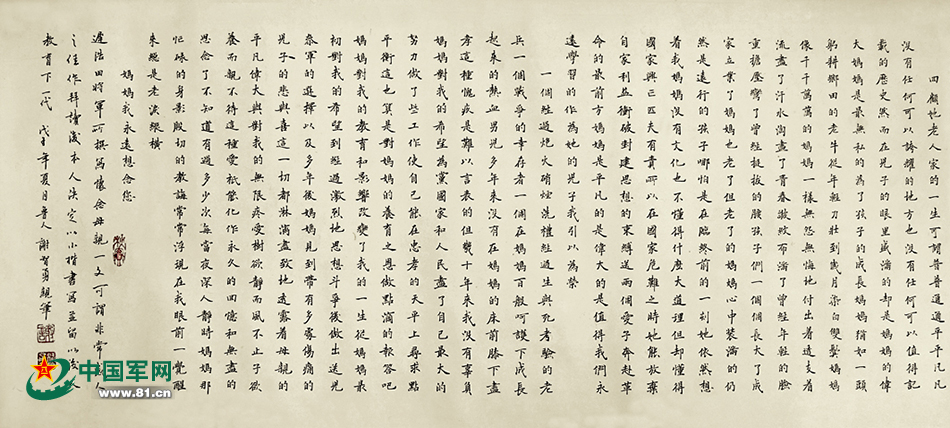 回顧他老人家的一生可謂普普通通平平凡凡
沒有任何可以誇耀的地方也沒有任何可以值得記
載的歷史然而在兒子的眼里盛滿的却是媽媽的偉
大媽媽是最無私的為了孩子的成長媽媽猶如一頭
躬耕鄉田的老牛從年輕力壯到歲月染白雙鬢媽媽
像千千萬萬的媽媽一樣無怨無悔地付出着透支着
流盡了汗水淌盡了青春皺紋布滿了曾經年輕的臉
重擔壓彎了曾經挺拔的腰孩子們一個個成長大了成
家立業了媽媽也老了但老了的媽媽心中裝滿的仍
然是遠行的孩子哪怕是在臨終前的一刻她依然想
着我媽媽沒有文化也不懂得什麼大道理但却懂得
國家興亡匹夫有責所以在國家危難之時她能放棄
自家利益衝破封建思想的束縛送兩個愛子奔赴革
命的最前方媽媽是平凡的是偉大的是值得我們永
遠學習的作為她的兒子我引以為榮
一個經過炮火硝煙洗禮經過生與死考驗的老
兵一個戰爭的幸存者一個在媽媽百般呵護下成長
起來的熱血男兒多年來沒有在媽媽的床前膝下盡
孝這種愧疚是難以言表的但幾十年來我沒有辜負
媽媽對我的希望為黨國家和人民盡了自己最大的
努力做了些工作使自己能在忠孝的天平上尋求點
平衡這也算是對媽媽的養育之恩做點滴的報答吧
媽媽對我的教育和影響改變了我的一生從媽媽最
初對我的希望到經過激烈地思想鬥爭後做出送兒
參軍的選擇以及多年後媽媽見到帶有多處傷痛的
兒子的悲與喜這一切都淋漓盡致地透露着母親的
平凡偉大與對我的無限疼愛樹欲靜而風不止子欲
養而親不待這種愛祇能化作永久的回憶和無盡的
思念了不知道有過多少次每當夜深人靜時媽媽那
忙碌的身影殷切的教誨常常浮現在我眼前一覺醒
來總是老淚縱橫
媽媽我永遠想念您
遲浩田將軍所撰寫懷念母親一文可謂非常人
之佳作拜讀後本人決定以小楷書寫並留以後人
教育下一代 戊子年夏月晉人謝勇親筆
中国军网
www.81.cn